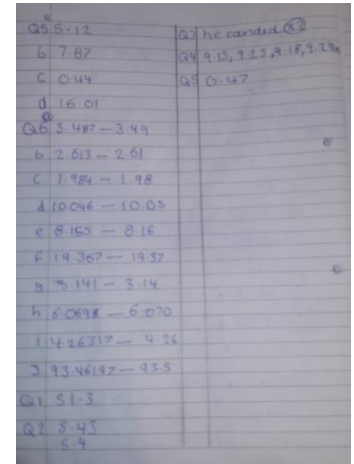 a
Q5 5.12
b 7.87
c 0.44
d 16.01
Q6 3.487 — 3.49
b 2.613 — 2.61
c 1.984 — 1.98
d 10.046 — 10.05
e 8.155 — 8.16
f 19.367 — 19.37
g 3.141 — 3.14
h 6.0698 — 6.070
i 4.26317 — 4.26
J 93.46192 — 93.5
Q1 51.3
Q2 5.43
5.4
Q3 he rounded
Q4 9.15, 9.25, 9.18, 9.24
Q5 0.47